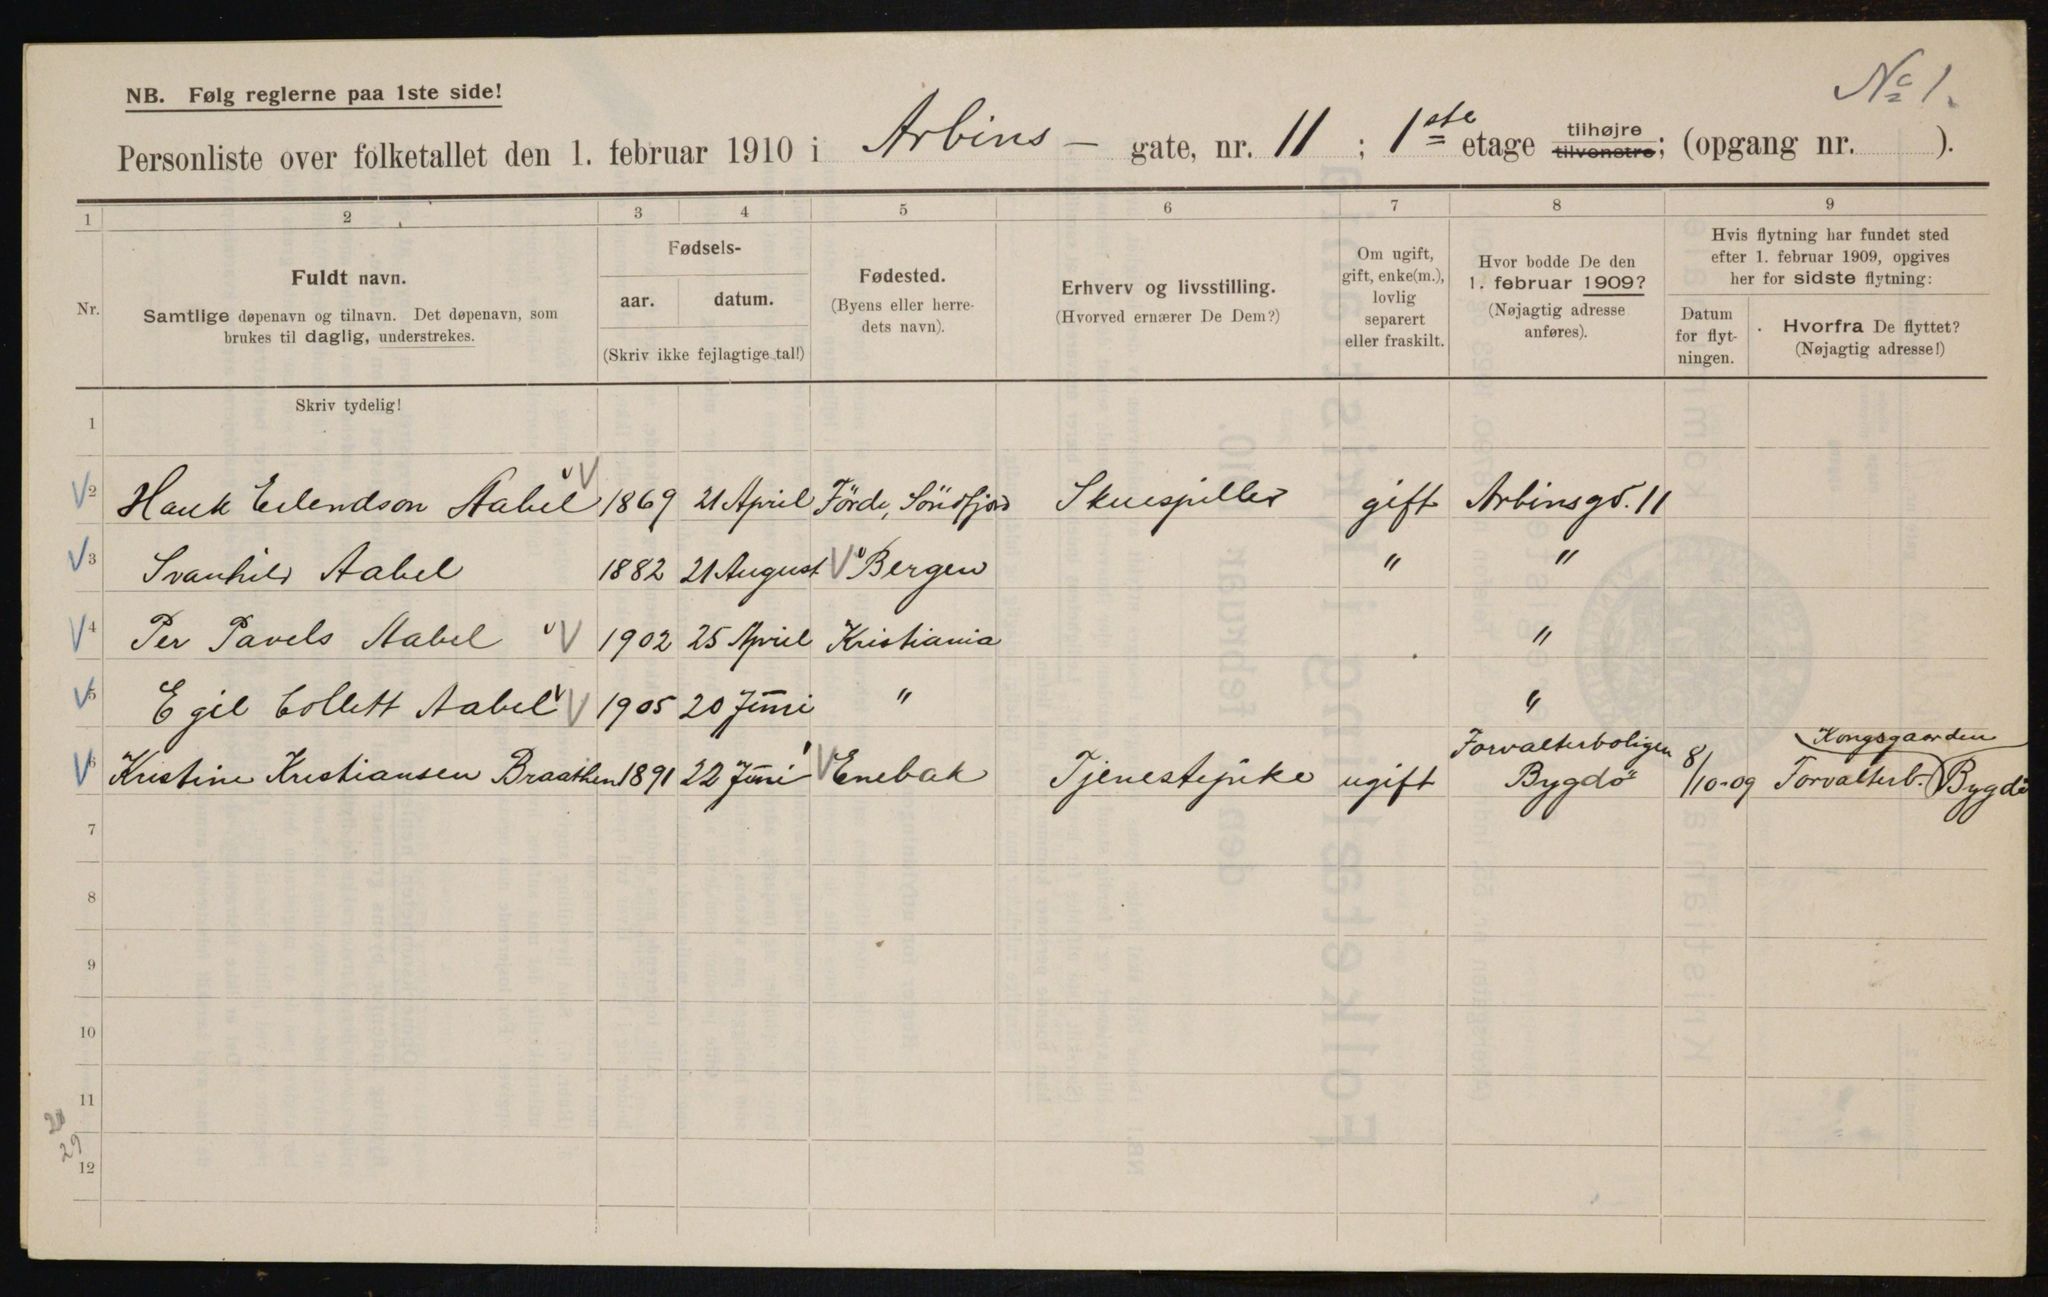 No 1.
NB. Følg reglerne paa 1ste side!
Personliste over folketallet den 1. februar 1910 i Arbins – gate, nr. 11 ; 1ste etage tilhøjre tilvenstre; (opgang nr. ).
1 2 3 4 5 6 7 8 9
Nr.
Fuldt navn.
Samtlige døpenavn og tilnavn. Det døpenavn, som
brukes til daglig, understrekes.
Fødsels-
aar.
datum.
(Skriv ikke fejlagtige tal!)
Fødested.
(Byens eller herre-
dets navn).
Erhverv og livsstilling.
(Hvorved ernærer De Dem?)
Om ugift,
gift, enke(m.),
lovlig
separert
eller fraskilt.
Hvor bodde De den
1. februar 1909?
(Nøjagtig adresse
anføres).
Hvis flytning har fundet sted
efter 1. februar 1909, opgives
her for sidste flytning:
Datum
for flyt-
ningen.
Hvorfra De flyttet?
(Nøjagtig adresse!)
Skriv tydelig!
1
2 Hauk Erlendson Aabel 1869 21 April Förde, Söndfjord Skuespiller gift Arbinsgd. 11
3 Svanhild Aabel 1882 21 August Bergen " "
4 Per Pavels Aabel 1902 25 April Kristiania "
5 Egil Collett Aabel 1905 20 Juni " "
6 Kristine Kristiansen Braathen 1891 22 Juni Enebak Tjenestepike ugift Forvalterboligen Bygdö 8/10-09 Kongsgaarden Forvalterb. Bygdö
7
8
9
10
11
12
29